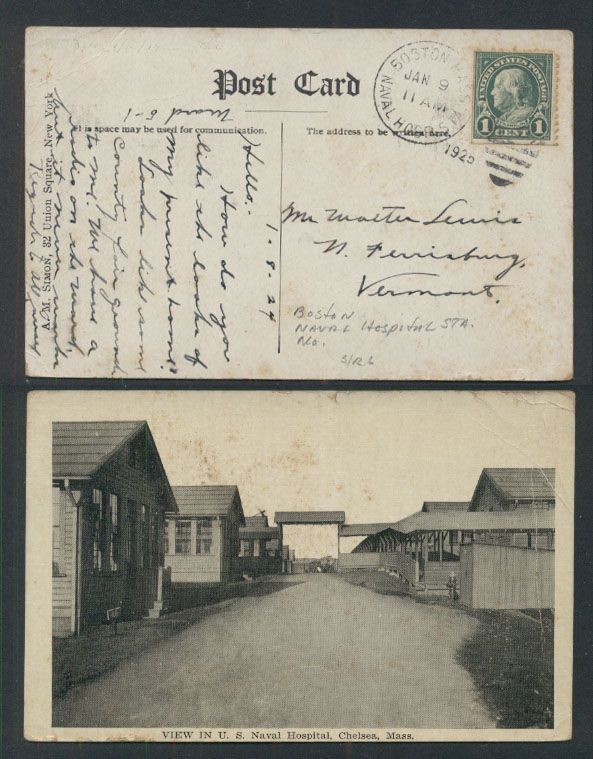 Post Card
This space may be used for communication.
The address to be written here.
A. M. SIMON, 32 Union Square, New York
BOSTON MASS.
JAN 9
11 AM
1925
NAVAL HOSP. STA.
UNITED STATES POSTAGE
FRANKLIN
1 CENT 1
Ward 5-1
1-8-24
Hello.-
How do you
like the looks of
my present home?
Looks like some
County fair grounds
to me. We have a
radio on the ward,
but it never works
Regards to all,
Mr Walter Lewis
N. Ferrisburg,
Vermont.
BOSTON
NAVAL HOSPITAL STA.
No.
S/R L
VIEW IN U. S. Naval Hospital, Chelsea, Mass.